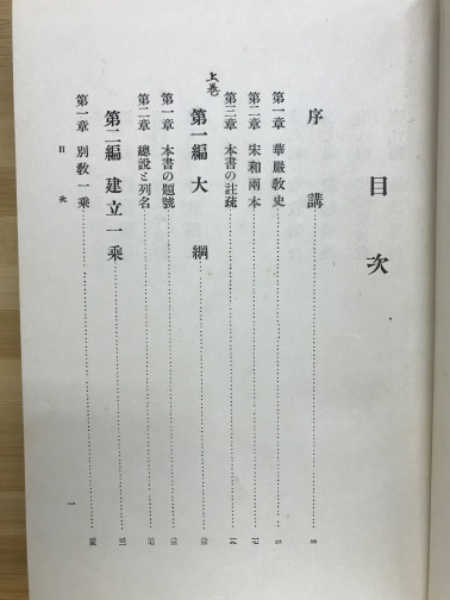 目次
序講
第一章 華嚴教史
第二章 宋和兩本
第三章 本書の註疏
上巻
第一編 大綱
第一章 本書の題號
第二章 總説と列名
第二編 建立一乘
第一章 別教一乘
目次
一